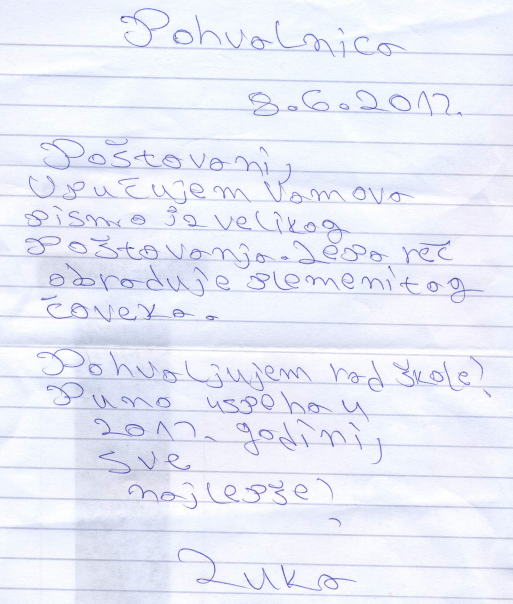 Pohvalnica
8.6.2017.
Poštovani,
Upućujem Vam ovo
pismo iz velikog
Poštovanja. Lepa reč
obraduje plemenitog
čoveka.
Pohvaljujem rad škole!
Puno uspeha u
2017. godini,
sve
najlepše!
Luka